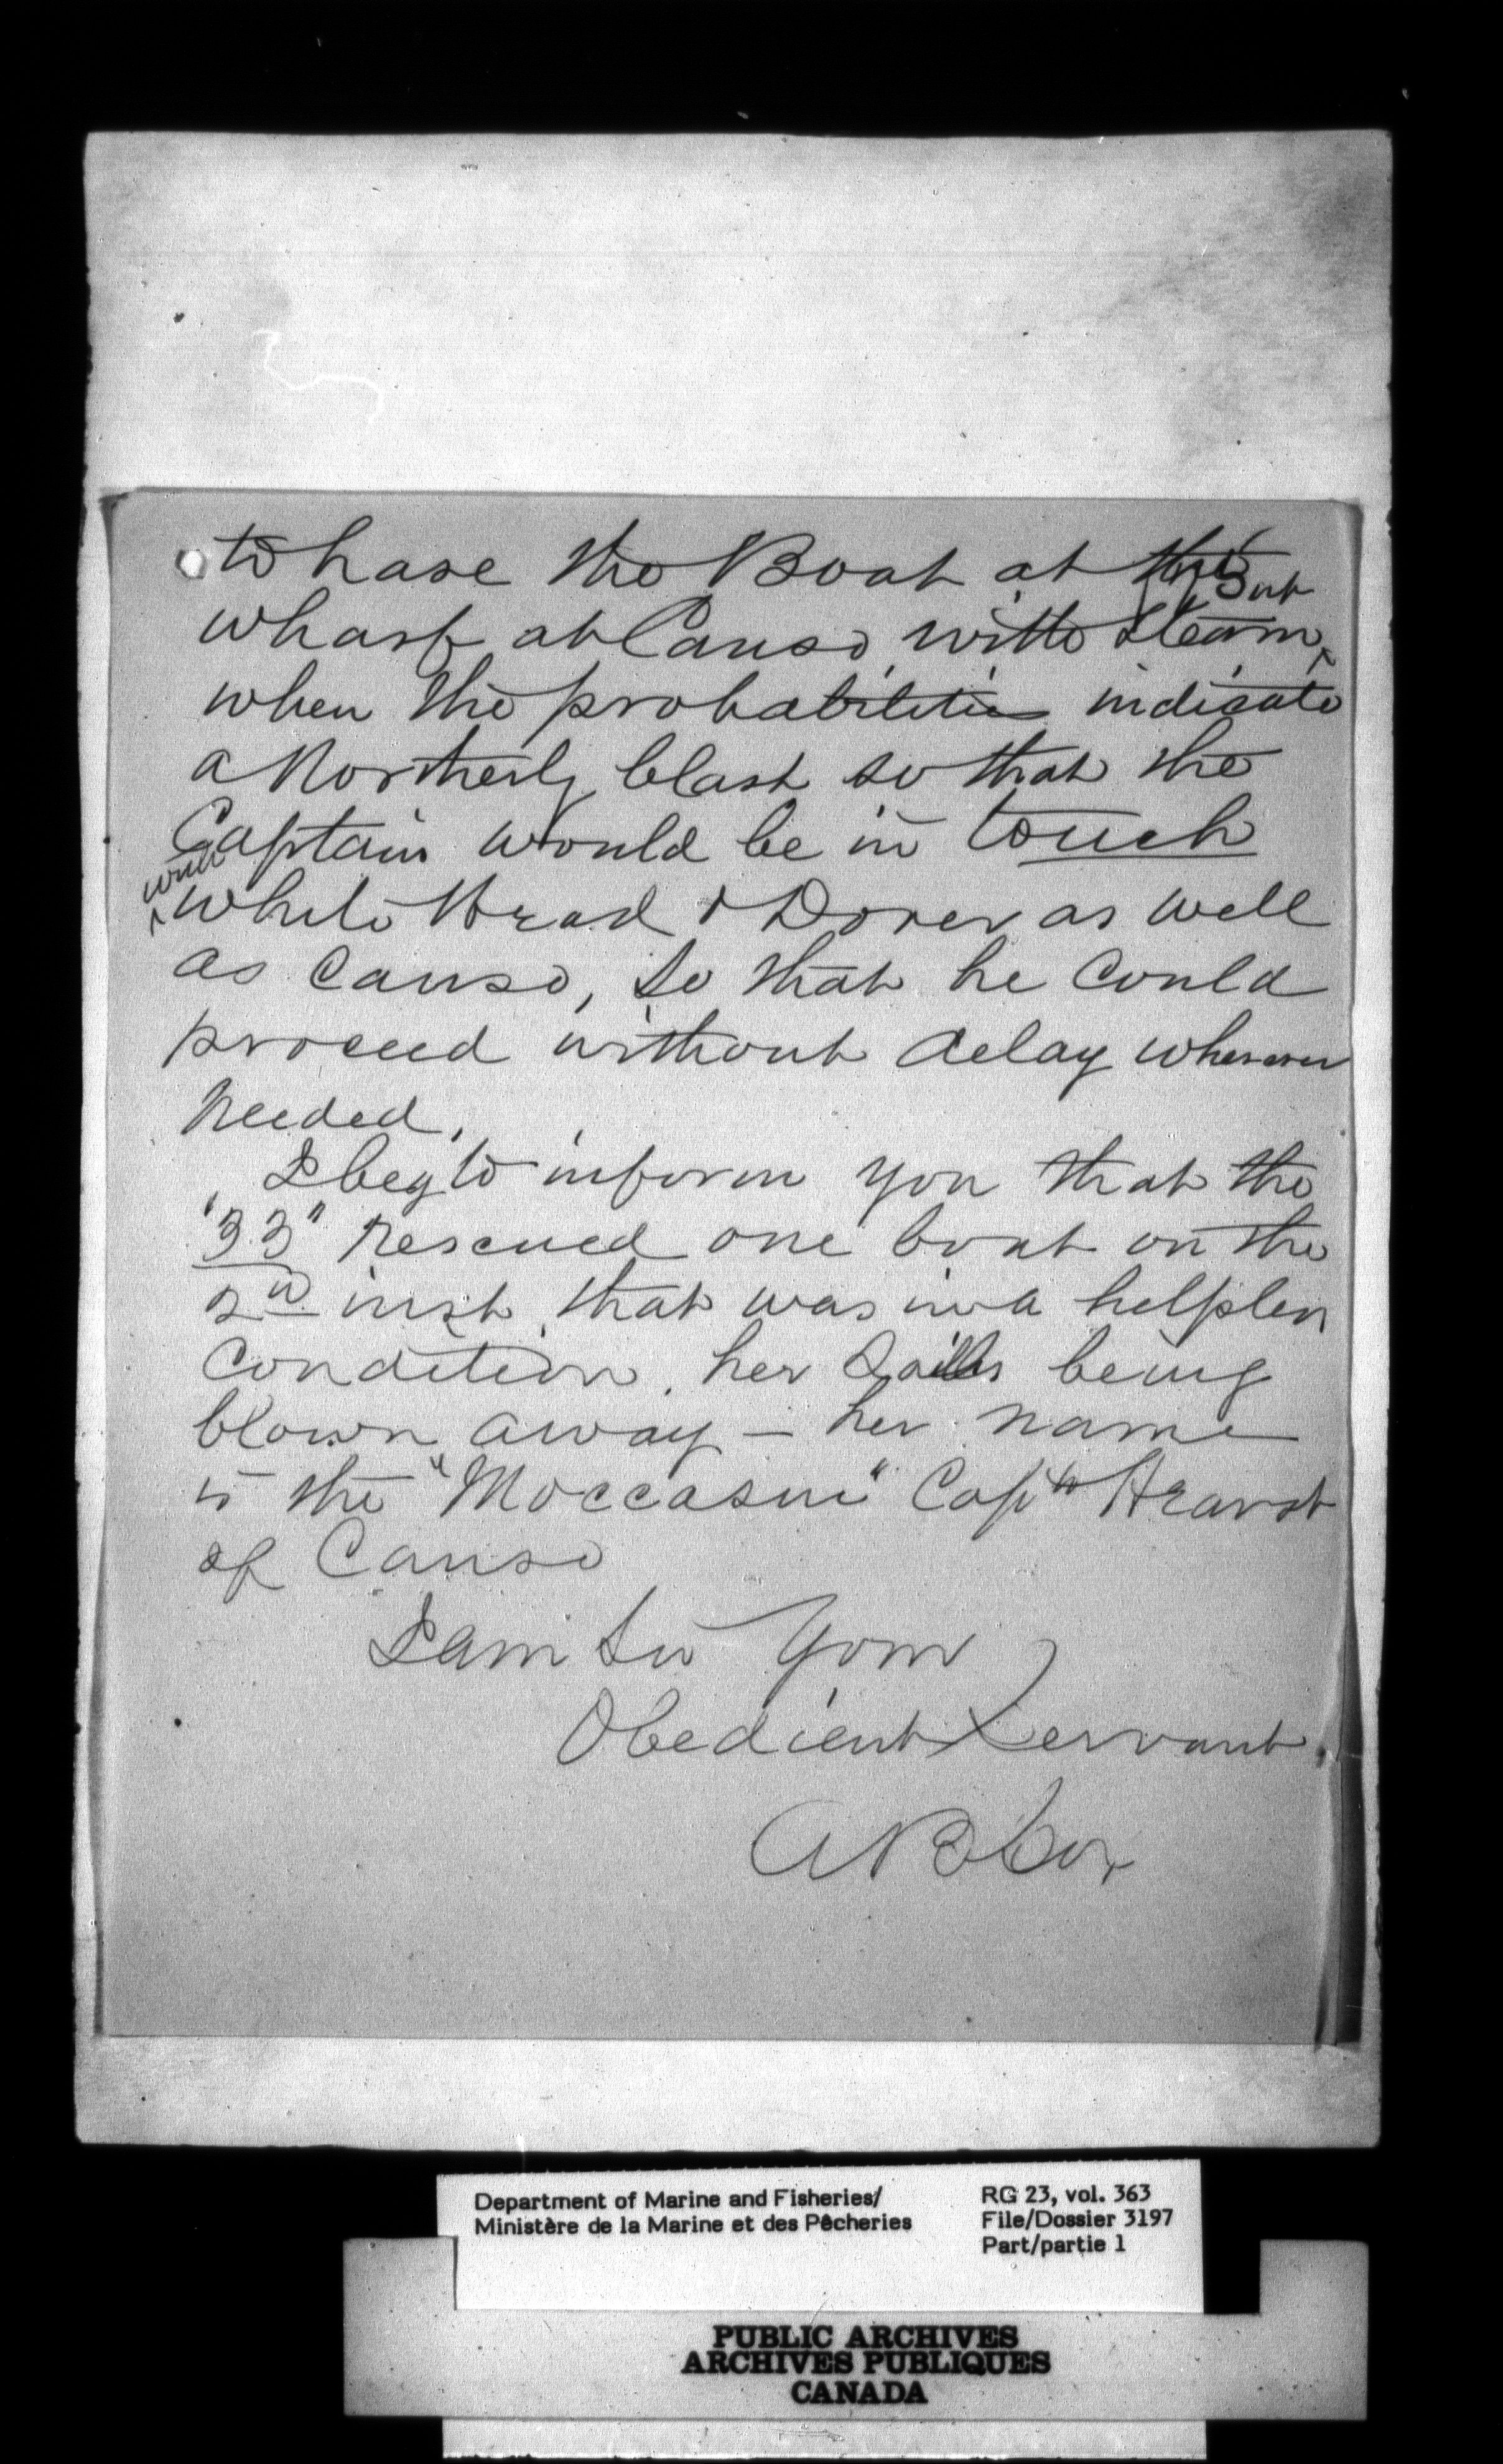 to have the Boat at the
wharf at Canso with Steam, out
when the probabilities indicate
a Northerly blast so that the
Captain would be in touch
with
White Head & Dover as well
as Canso, so that he could
proceed without delay wherever
needed.
I beg to inform you that the
"33" rescued one boat on the
2nd inst, that was in a helpless
condition, her Sails being
blown away – her name
is the "Moccasin" Capt Hearst
of Canso
I am Sir Your
Obedient Servant,
Department of Marine and Fisheries/
Ministère de la Marine et des Pêcheries
RG 23, vol. 363
File/Dossier 3197
Part/partie 1
PUBLIC ARCHIVES
ARCHIVES PUBLIQUES
CANADA